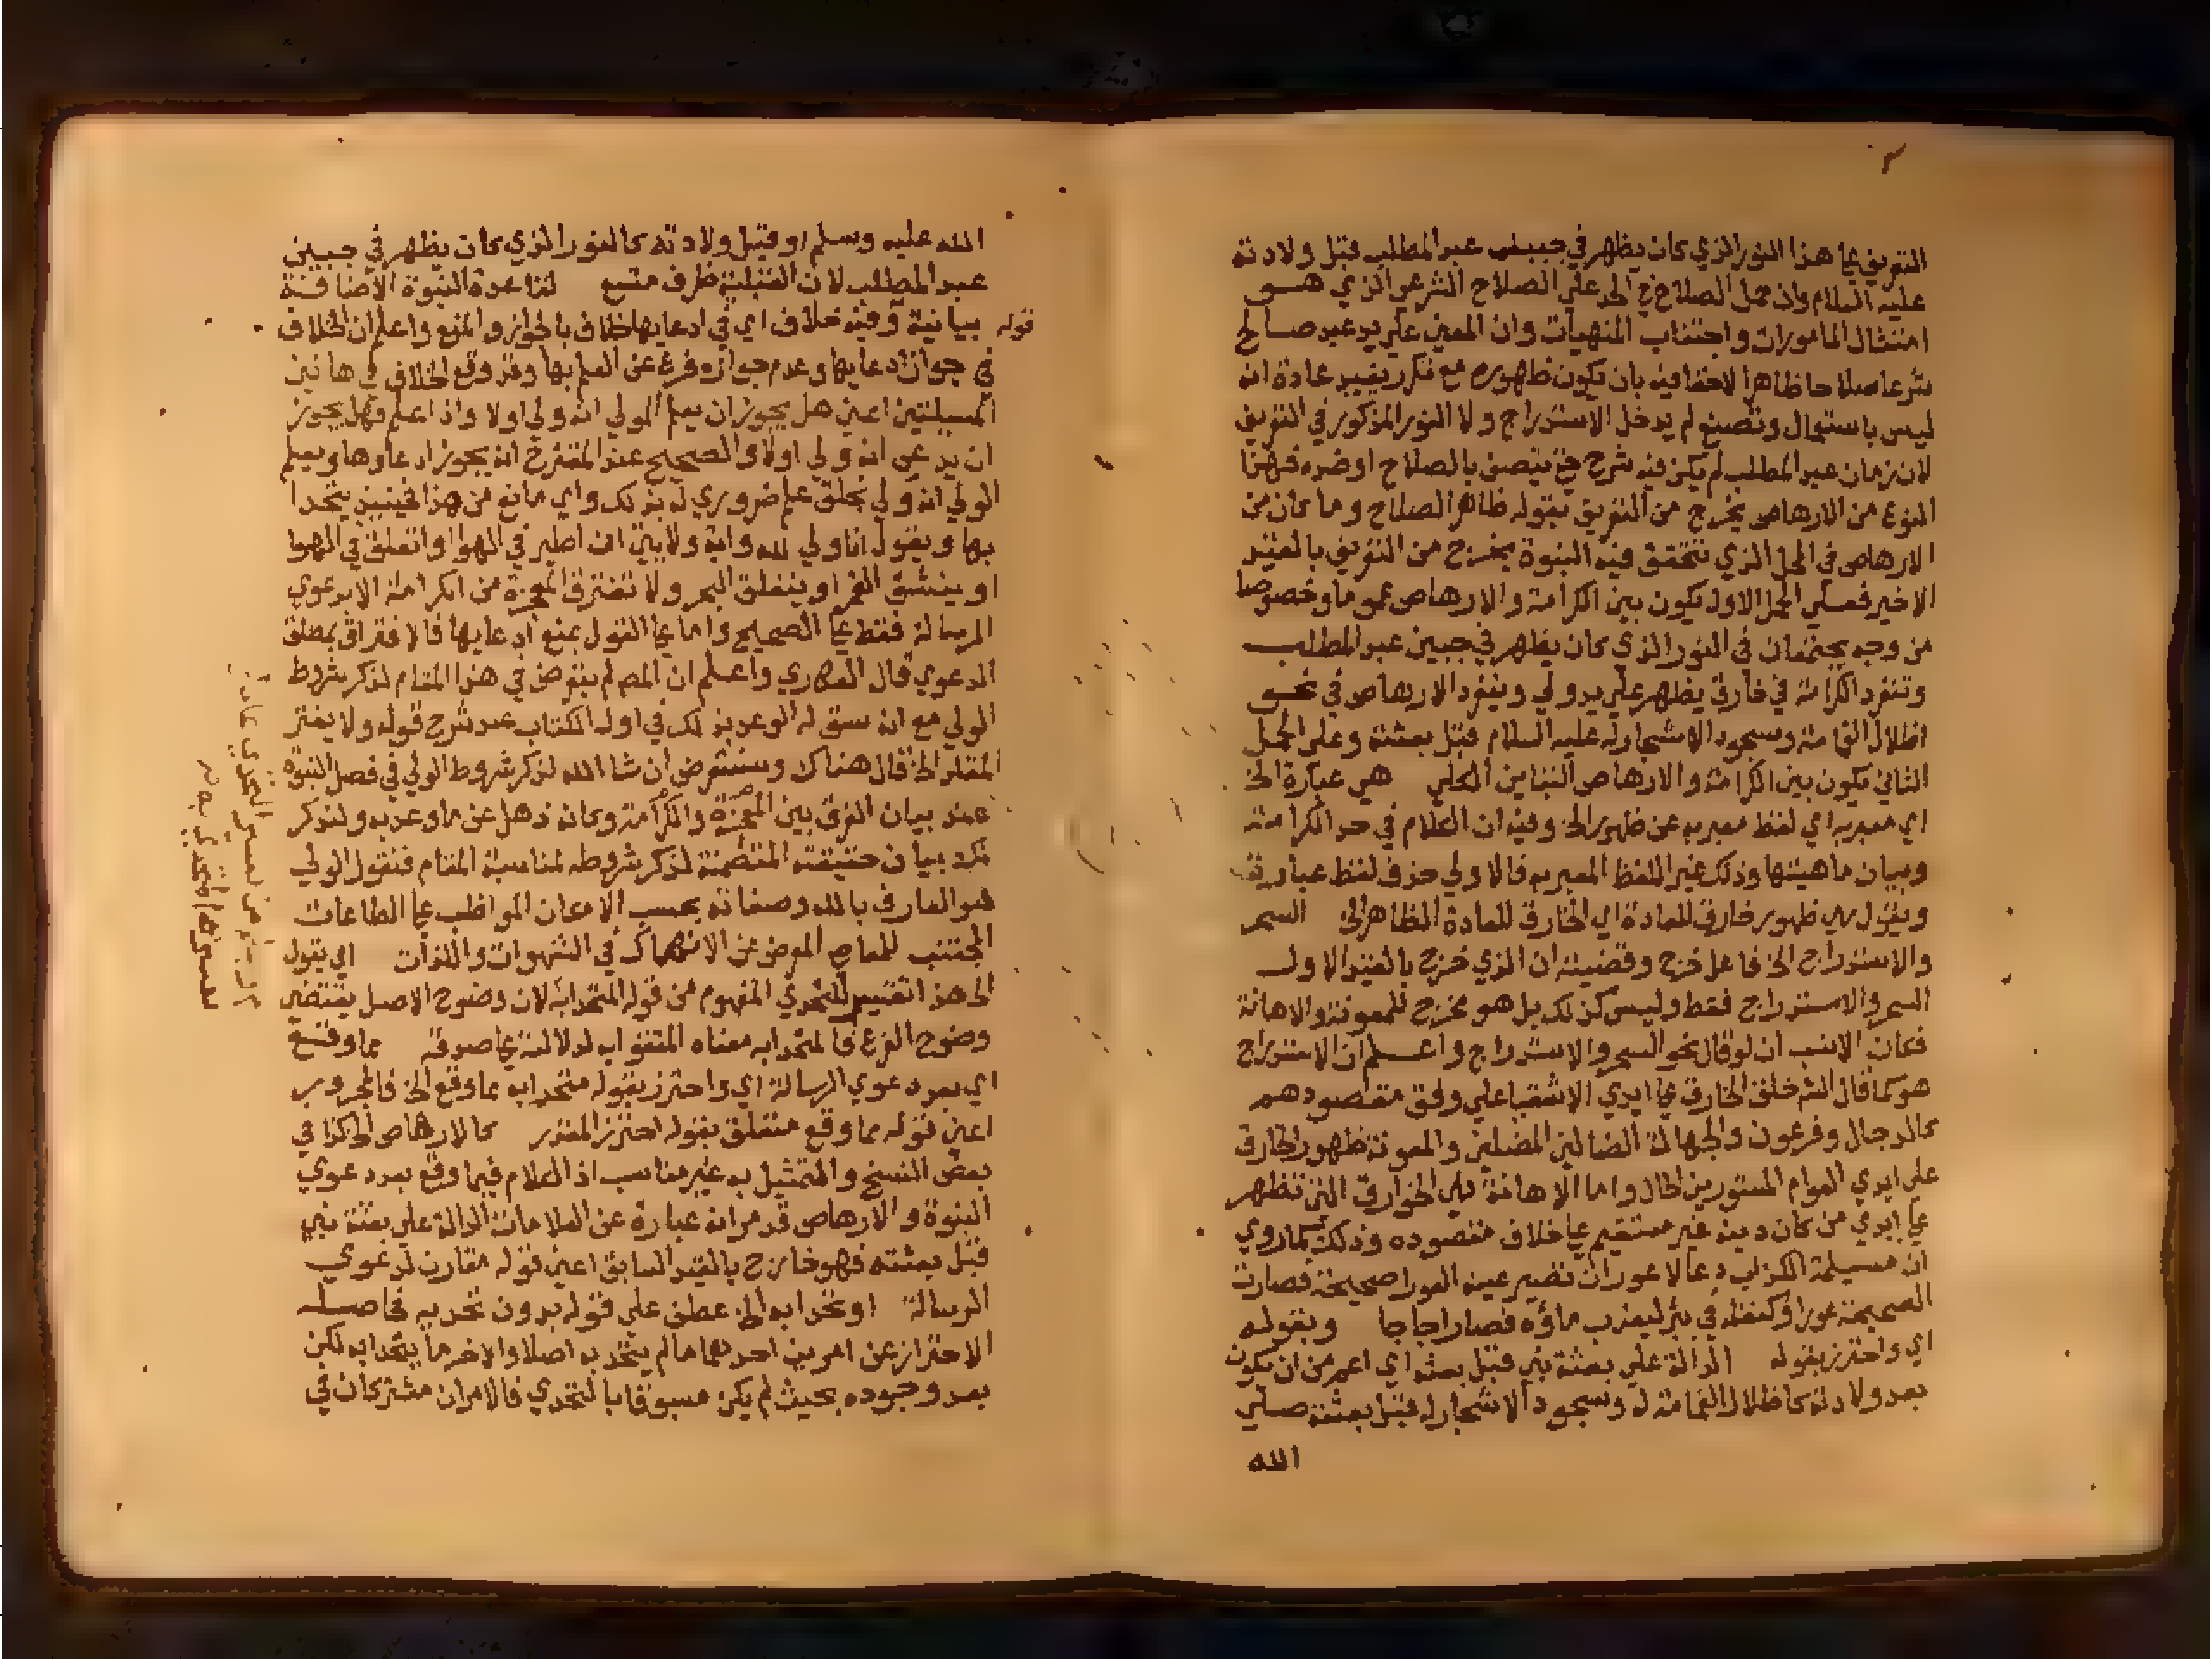 التعريف على هذا النور الذي كان يظهر في جبين عبد المطلب قبل ولادته
عليه السلام وان حمل الصلاح في الحد على الصلاح الشرعي الذي هو
امتثال المامورات واجتناب المنهيات وان المعنى على يد عبد صالح
شرعا صلاحا ظاهرا لاخفا فيه بان يكون ظهوره مع تكرر يفيد عادة انه
ليس باستهال وتصنع لم يدخل الاستدراج ولا النور المذكور في التعريف
لان زمان عبد المطلب لم يكن فيه شرع حتى يتصف بالصلاح او ضده فهذا
النوع من الارهاص يخرج من التعريف بقوله ظاهر الصلاح وما كان من
الارهاص في المحل الذي تتحقق فيه النبوة يخرج من التعريف بالقيد
الاخير فعلى الحمل الاول يكون بين الكرامة والارهاص عموما وخصوصا
من وجه يجتمعان في النور الذي كان يظهر في جبين عبد المطلب
وتنفرد الكرامة في خارق يظهر على يد ولي وينفرد الارهاص في نحو
اظلال الغمامة وسجود الاشجار له عليه السلام قبل بعثته وعلى الحمل
الثاني يكون بين الكرامة والارهاص التباين الكلي هي عبارة الخ
اي معبر به اي لفظ معبر به عن ظهور الخ وفيه ان الكلام في حد الكرامة
وبيان ماهيتها وذلك غير اللفظ المعبر به فالاولى حذف لفظ عبارة
ويقول هي ظهور خارق للعادة اي الخارق للعادة الظاهر الخ السحر
والاستدراج الخ فاعل خرج وقضيته ان الذي خرج بالقيد الاول
السحر والاستدراج فقط وليس كذلك بل هو مخرج للمعونة والاهانة
فكان الانسب ان لو قال نحو السحر والاستدراج واعلم ان الاستدراج
هو كما قال الشم خلق الخارق على ايدي الاشقيا على وفق مقصودهم
كالدجال وفرعون والجهالة الضالين المضلين والمعونة ظهور الخارق
على ايدي العوام المستورين الحال واما الاهانة فهي الخوارق التي تظهر
على ايدي من كان دينه غير مستقيم على خلاف مقصوده وذلك كما روي
ان مسيلمة الكذاب دعا لاعور ان تصير عينه العورا صحيحة فصارت
الصحيحة عورا وكتفله في بئر ليعذب ماؤه فصار اجاجا وبقوله
اي واحترز بقوله الدالة على بعثة نبي قبل بعثه اي اعم من ان يكون
بعد ولادته كاظلال الغمامة له وسجود الاشجار له قبل بعثته صلى
الله
الله عليه وسلم او قبل ولادته كالنور الذي كان يظهر في جبين
عبد المطلب لان القبلية ظرف متسع لقاعدة النبوة الاضافة
قوله
بيانية وفيه خلاف اي في ادعايها خلاف بالجواز والمنع واعلم ان الخلاف
في جواز ادعايها وعدم جوازه فرع عن العلم بها وقد وقع الخلاف في هاتين
المسيلتين اعني هل يجوز ان يعلم الولي انه ولي اولا واذا علم فهل يجوز
ان يدعي انه ولي اولا والصحيح عند المقترح انه يجوز ادعاوها ويعلم
الولي انه ولي بخلق علم ضروري له بذلك واي مانع من هذا فحينيذ يتحدا
بها ويقول انا ولي لله واية ولايتي ان اطير في الهوا او اتعلق في الهوا
او ينشق القمر او ينفلق البحر ولا تفترق المعجزة من الكرامة الا بدعوى
الرسالة فقط على الصحيح واما على القول بمنع ادعايها فالافتراق بمطلق
الدعوي قال العكاري واعلم ان المص لم يتعرض في هذا المقام لذكر شروط
الولي مع انه سبق له الوعد بذلك في اول الكتاب عند شرح قوله ولا يفتر
المقلد الخ قال هناك وسنتعرض ان شا الله لذكر شروط الولي في فصل النبوة
عند بيان الفرق بين المعجزة والكرامة وكانه ذهل عن ما وعد به ولنذكر
لك بيان حقيقته المتضمنة لذكر شروطه لمناسبة المقام فنقول الولي
هو العارف بالله وصفاته بحسب الامكان المواظب على الطاعات
المجتنب للمعاصي المعرض عن الانهماك في الشهوات واللذات اي يقول
الخ هذا تفسير للتحدي المفهوم من قوله المتحدا به لان وضوح الاصل يقتضي
وضوح الفرع فالمتحدا به معناه المتفوه به لدلالته على صدقه مما وقع
اي بعد دعوي الرسالة اي واحترز بقوله متحدا به مما وقع الخ فالمجرور
اعني قوله مما وقع متعلق بقوله احترز المقدر كالارهاص الخ كذا في
بعض النسخ والتمثيل به غير مناسب اذ الكلام فيما وقع بعد دعوي
النبوة والارهاص قد مر انه عبارة عن العلامات الدالة على بعثة نبي
قبل بعثته فهو خارج بالقيد السابق اعني قوله مقارن لدعوي
الرسالة او تحدا به الخ عطف على قوله بدون تحد به فحاصله
الاحتراز عن امرين احدهما ما لم يتحد به اصلا والاخر ما يتحدا به لكن
بعد وجوده بحيث لم يكن مسبوقا بالتحدي فالامران مشتركان في